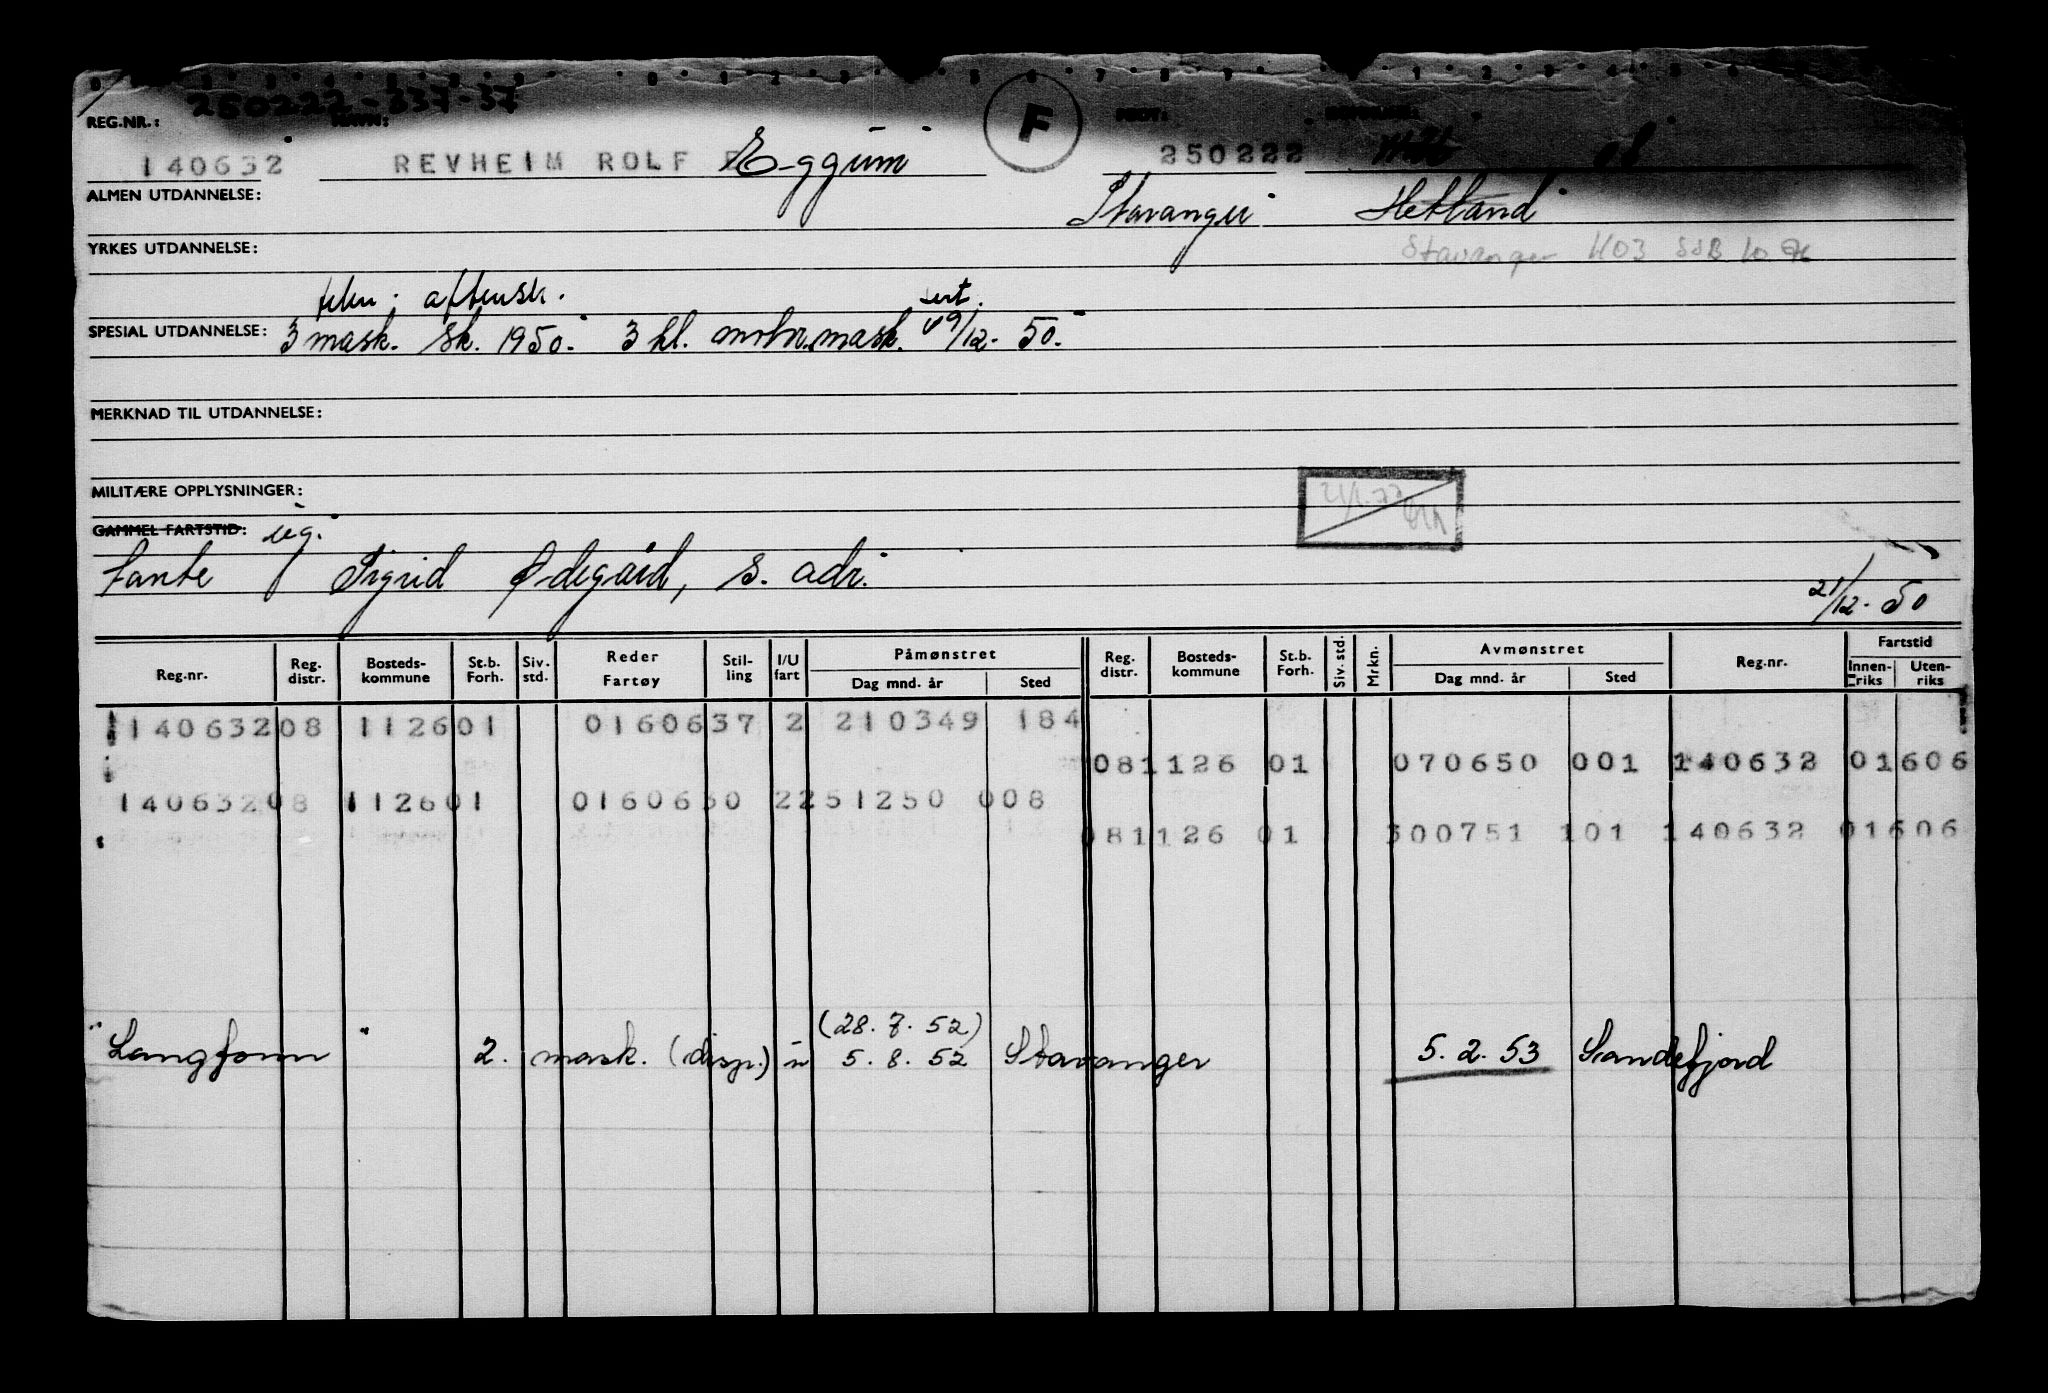 250222-337-37
F
REG.NR.: NAVN: FØDT:
140632 REVHEIM ROLF Eggum 250222 08
ALMEN UTDANNELSE: Stavanger Hetland
YRKES UTDANNELSE: Stavanger 1103
aftensk.
SPESIAL UTDANNELSE: 3 mask. sk. 1950. 3 kl. motor.mask. sert. 19/12-50.
MERKNAD TIL UTDANNELSE:
MILITÆRE OPPLYSNINGER:
GAMMEL FARTSTID:
tante Sigrid Ødegård, s. adr.
21/12-50
Reg.nr. Reg. distr. Bosteds-kommune St.b. Forh. Siv. std. Reder Fartøy Stil-ling I/U fart Påmønstret Dag mnd. år Sted Reg. distr. Bosteds-kommune St.b. Forh. Siv. std. Mrkn. Avmønstret Dag mnd. år Sted Reg.nr. Fartstid Innen-riks Uten-riks
140632 08 1126 01 01606 37 2 210349 184
08 1126 01 070650 001 140632 01606
140632 08 1126 01 01606 30 2 251250 008
08 1126 01 300751 101 140632 01606
(28.7.52)
"Langfonn" 2. mask. (disp.) u 5.8.52 Stavanger 5.2.53 Sandefjord